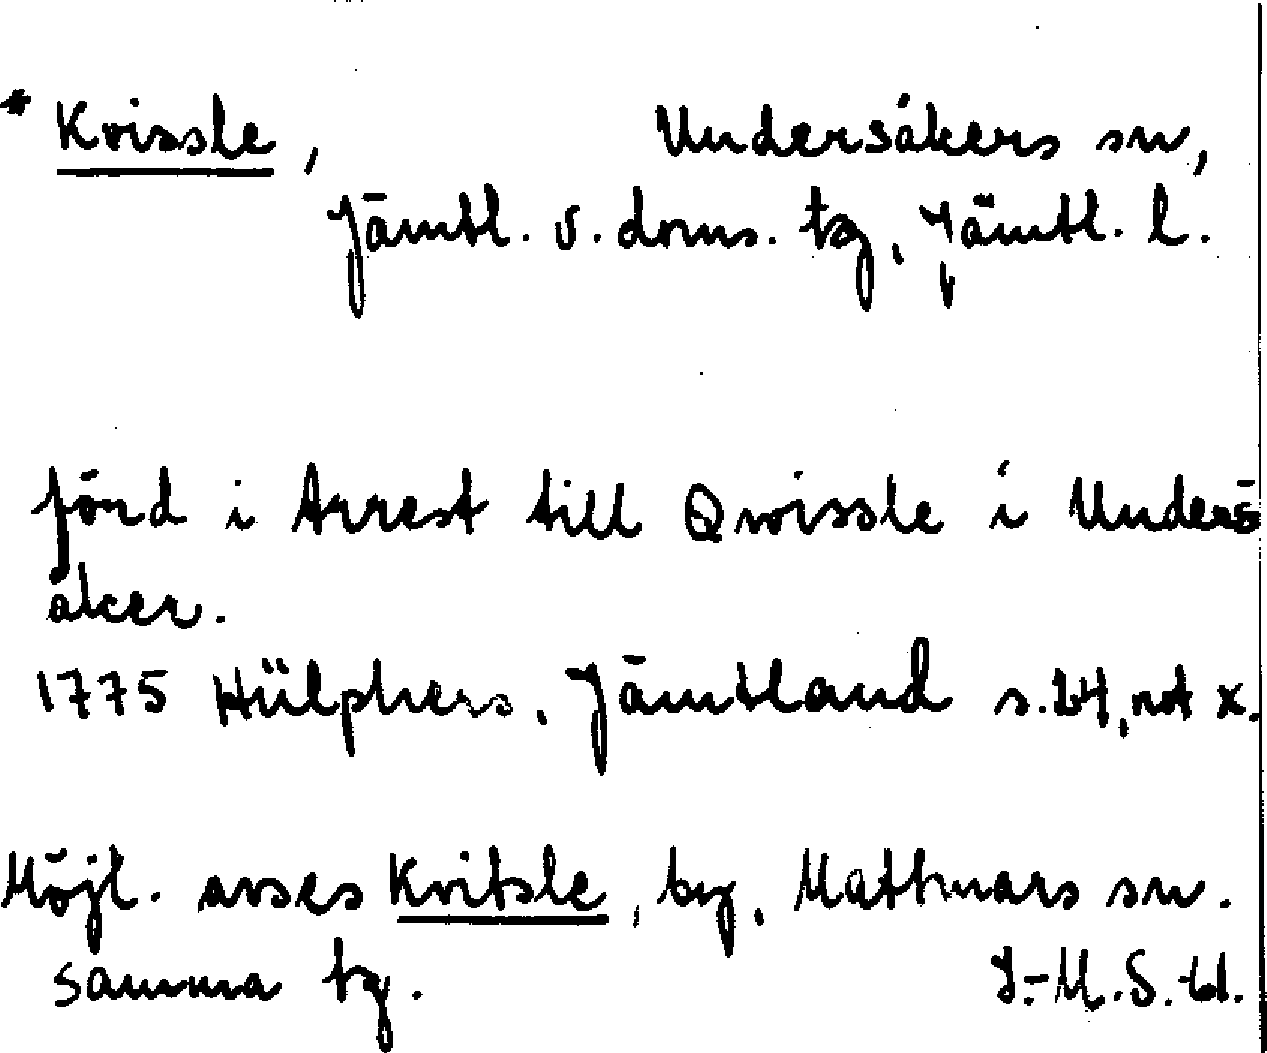 * Kvissle, Undersåkers sn,
Jämtl. v. doms. tg, Jämtl. l.
förd i Arrest till Qwissle i Unders=
åker.
1775 Hülphers, Jämtland s. 64, not x.
Möjl. avses Kvitsle, by, Mattmars sn.
samma tg.